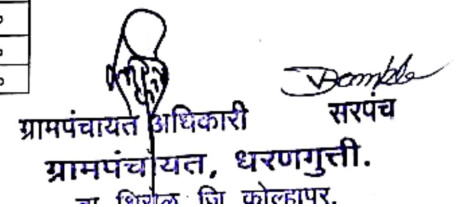 ग्रामपंचायत अधिकारी सरपंच
ग्रामपंचायत, धरणगुत्ती.
ता शिरोळ जि कोल्हापर.